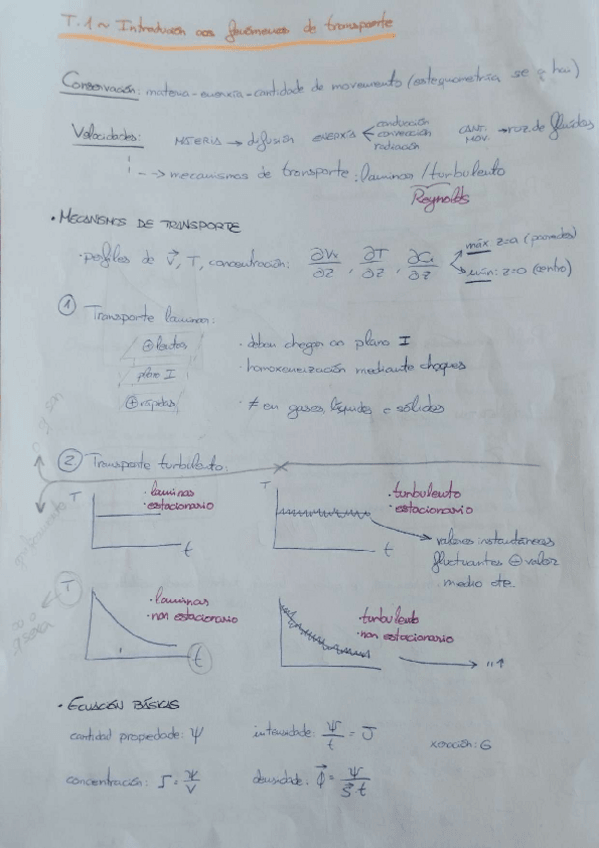 T.1 ~ Introducción aos fenómenos de transporte
Conservación: materia - enerxía - cantidade de movemento (estequiometría se q hai)
Velocidades: MATERIA → difusión ENERXÍA conducción convección radiación CANT. MOV. → roz. de fluídos
--→ mecanismos de transporte: laminar / turbulento
Reynolds
• MECANISMOS DE TRANSPORTE
· perfiles de v⃗, T, concentración: ∂v/∂z, ∂T/∂z, ∂C/∂z máx: z=a (paredes)
mín: z=0 (centro)
① Transporte laminar:
⊕ lentas · deben chegar ao plano I
plano I · homoxeneización mediante choques
⊕ rápidas · ≠ en gases, líquidos e sólidos
② Transporte turbulento:
T · laminar · estacionario t
T · turbulento · estacionario t
→ valores instantáneos fluctuantes ⊖ valor medio cte
T · laminar · non estacionario t
turbulento · non estacionario → "↑
• ECUACIÓN BÁSICAS
cantidad propiedade: Ψ intensidade: Ψ/t = J xeración: G
concentración: Γ = Ψ/V densidade: Φ⃗ = Ψ/(S⃗ t)